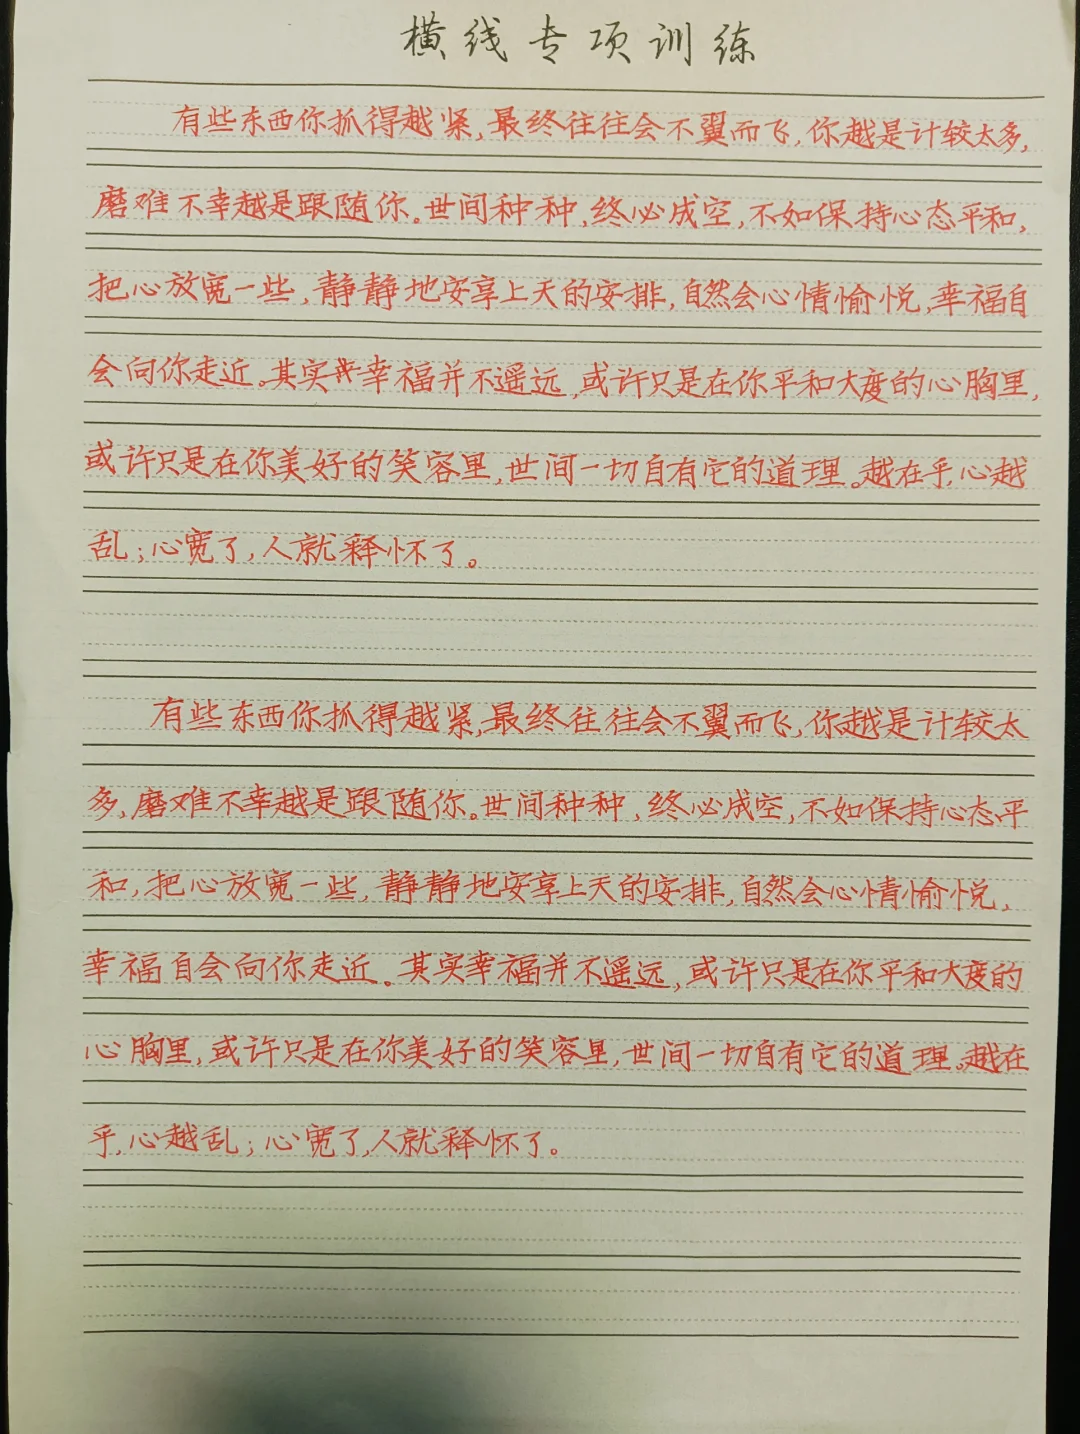 横线专项训练
有些东西你抓得越紧,最终往往会不翼而飞,你越是计较太多,
磨难不幸越是跟随你。世间种种,终必成空,不如保持心态平和,
把心放宽一些,静静地安享上天的安排,自然会心情愉悦,幸福自
会向你走近。其实幸福并不遥远,或许只是在你平和大度的心胸里,
或许只是在你美好的笑容里,世间一切自有它的道理。越在乎,心越
乱;心宽了,人就释怀了。
有些东西你抓得越紧,最终往往会不翼而飞,你越是计较太
多,磨难不幸越是跟随你。世间种种,终必成空,不如保持心态平
和,把心放宽一些,静静地安享上天的安排,自然会心情愉悦,
幸福自会向你走近。其实幸福并不遥远,或许只是在你平和大度的
心胸里,或许只是在你美好的笑容里,世间一切自有它的道理。越在
乎,心越乱;心宽了,人就释怀了。